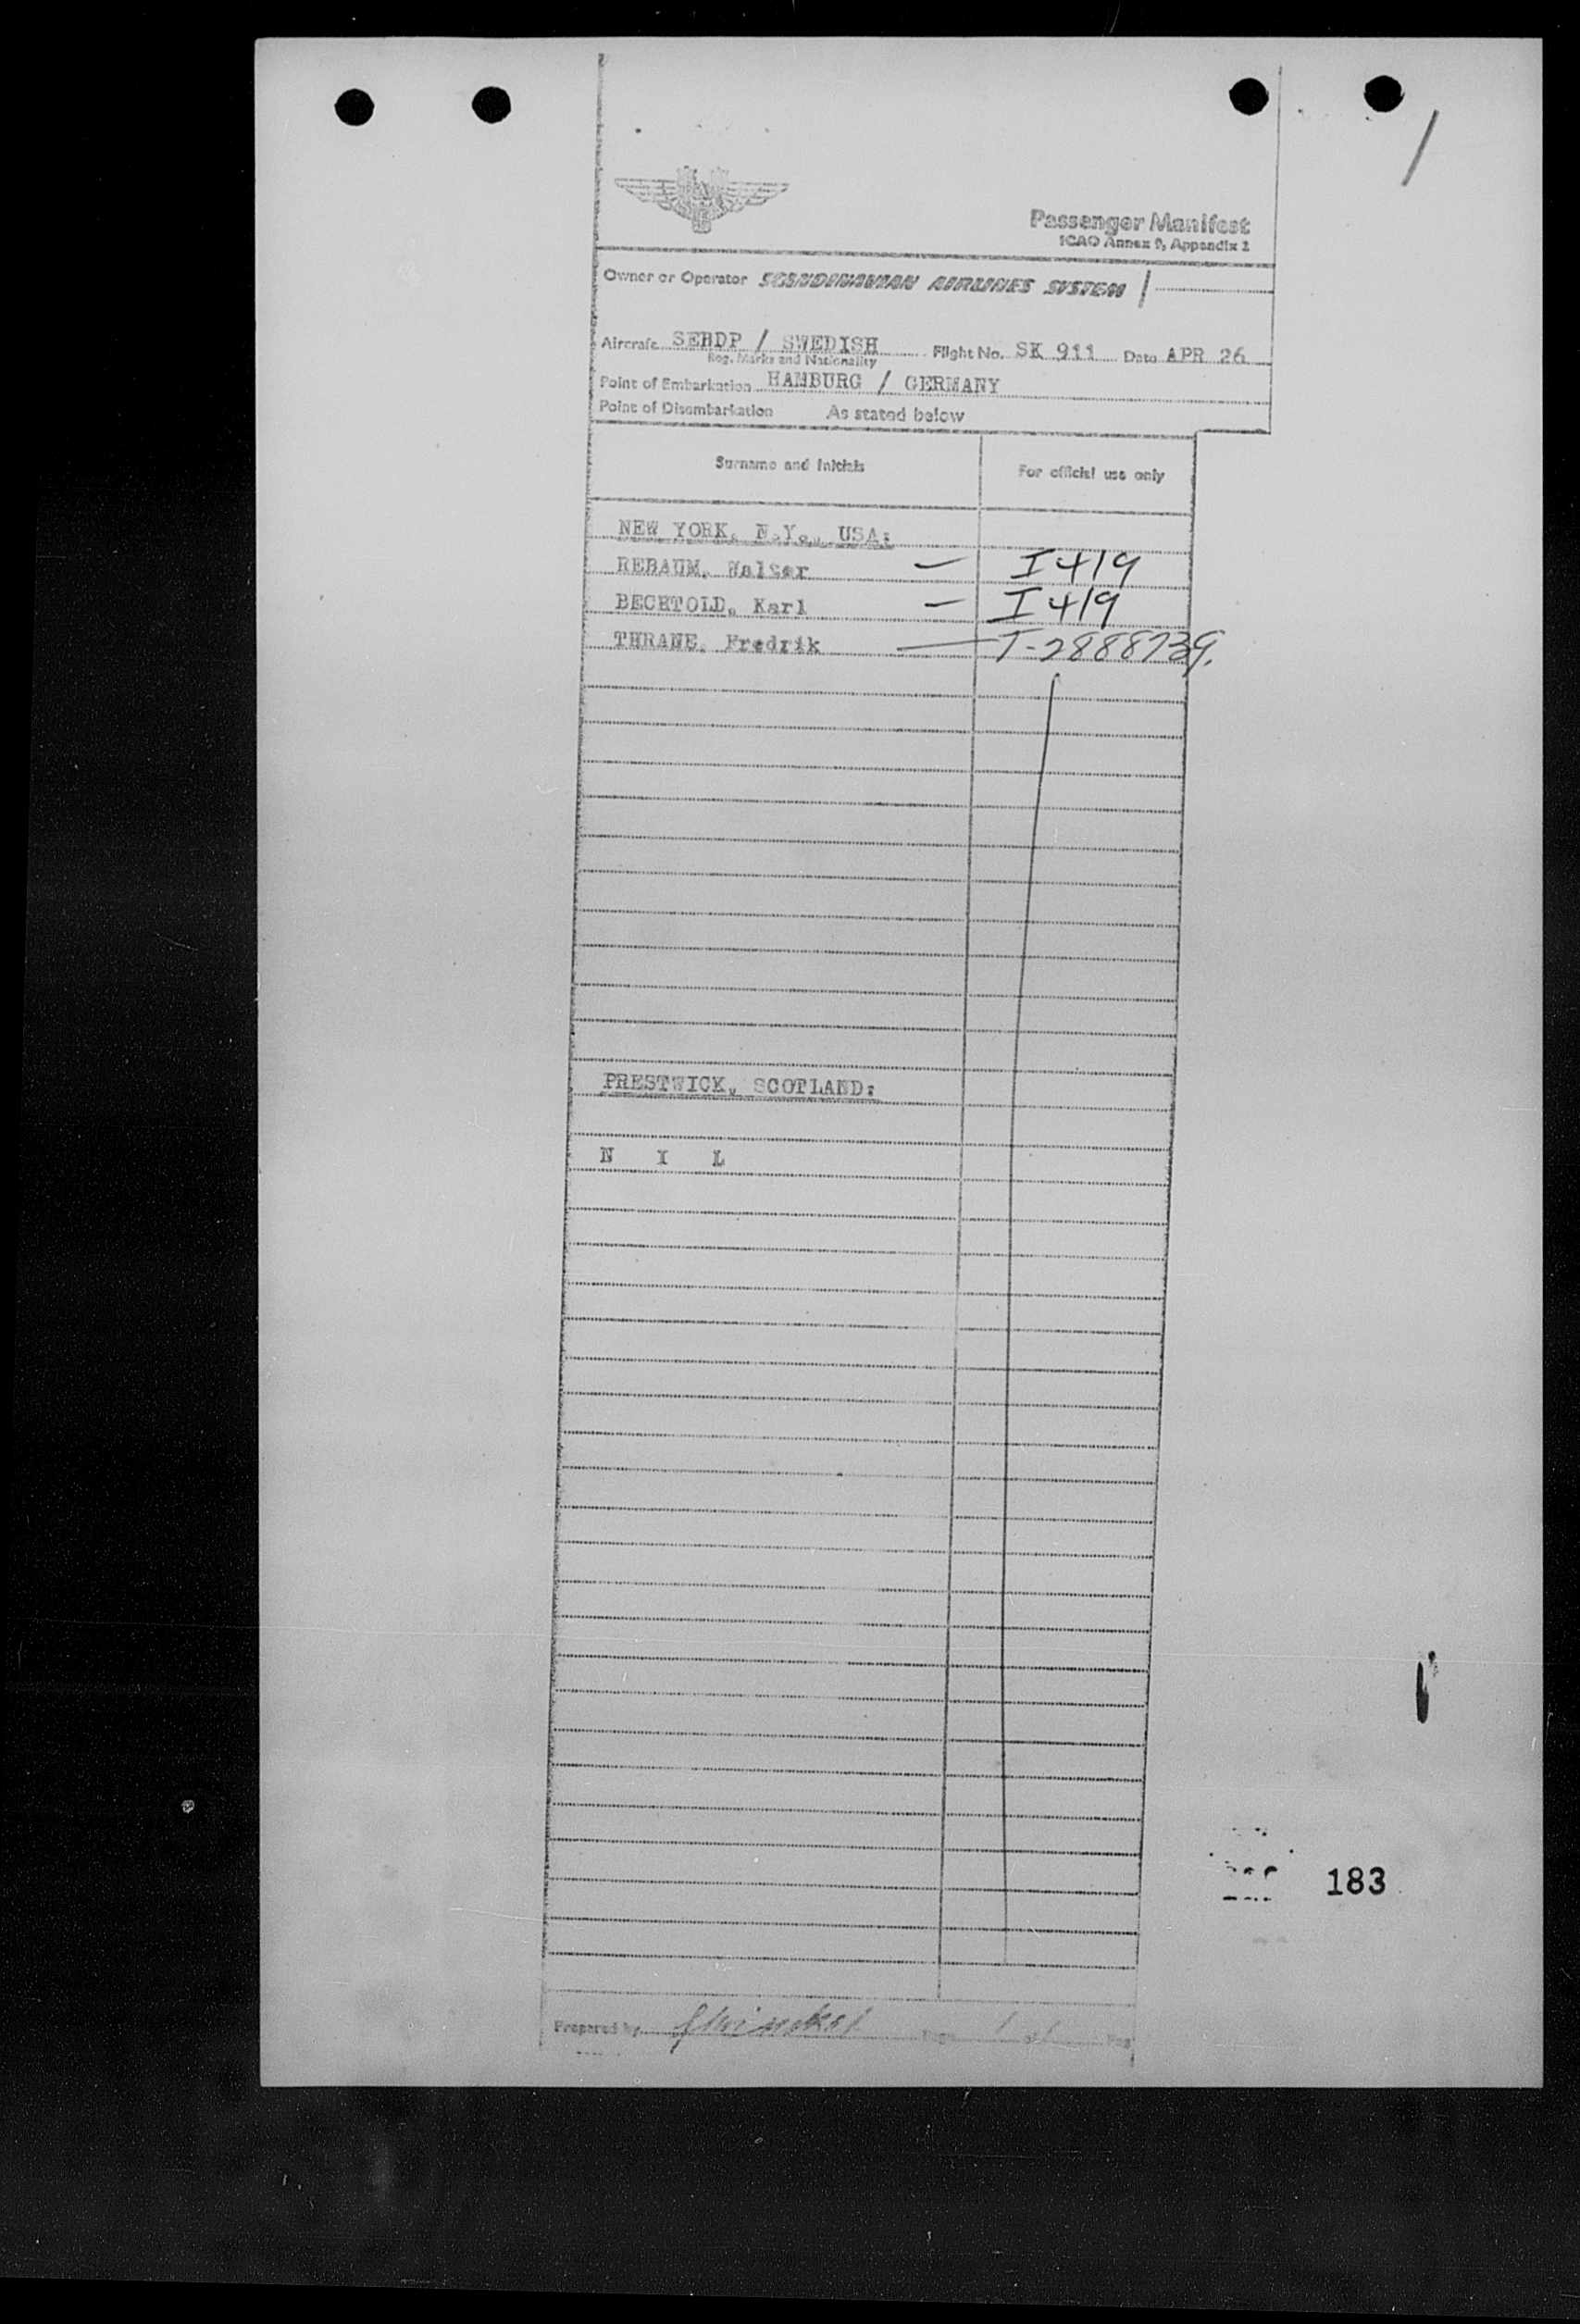 Passenger Manifest
ICAO Annex 9, Appendix 2
Owner or Operator SCANDINAVIAN AIRLINES SYSTEM
Aircraft SEBDP / SWEDISH Flight No. SK 911 Date APR 26
Reg. Marks and Nationality
Point of Embarkation HAMBURG / GERMANY
Point of Disembarkation As stated below
Surname and Initials For official use only
NEW YORK, N.Y., USA:
REBAUM, Walter — I 419
BECHTOLD, Karl — I 419
THRANE, Fredrik — T-2888739.
PRESTWICK, SCOTLAND:
N I L
183
Prepared by Page 1 of 1